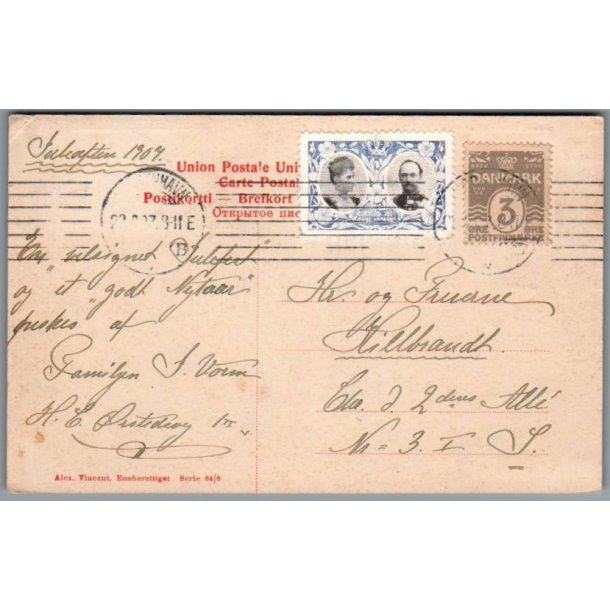 Juleaften 1907.
Union Postale Uni
Carte Postal
Postikortti — Brefkort
Открытое пис
8-11 E
B
DANMARK
3
ØRE ØRE
POSTFRIMÆRKE
velsignet "Julefest"
og "et godt Nytaar"
ønskes af
Familjen J. Worm
H. C. Ørstedsvej
Hr. og Fruerne
Hillbrandt.
2den Allé
Nr = 3. I S.
Alex. Vincent, Eneberettiget Serie 84/8